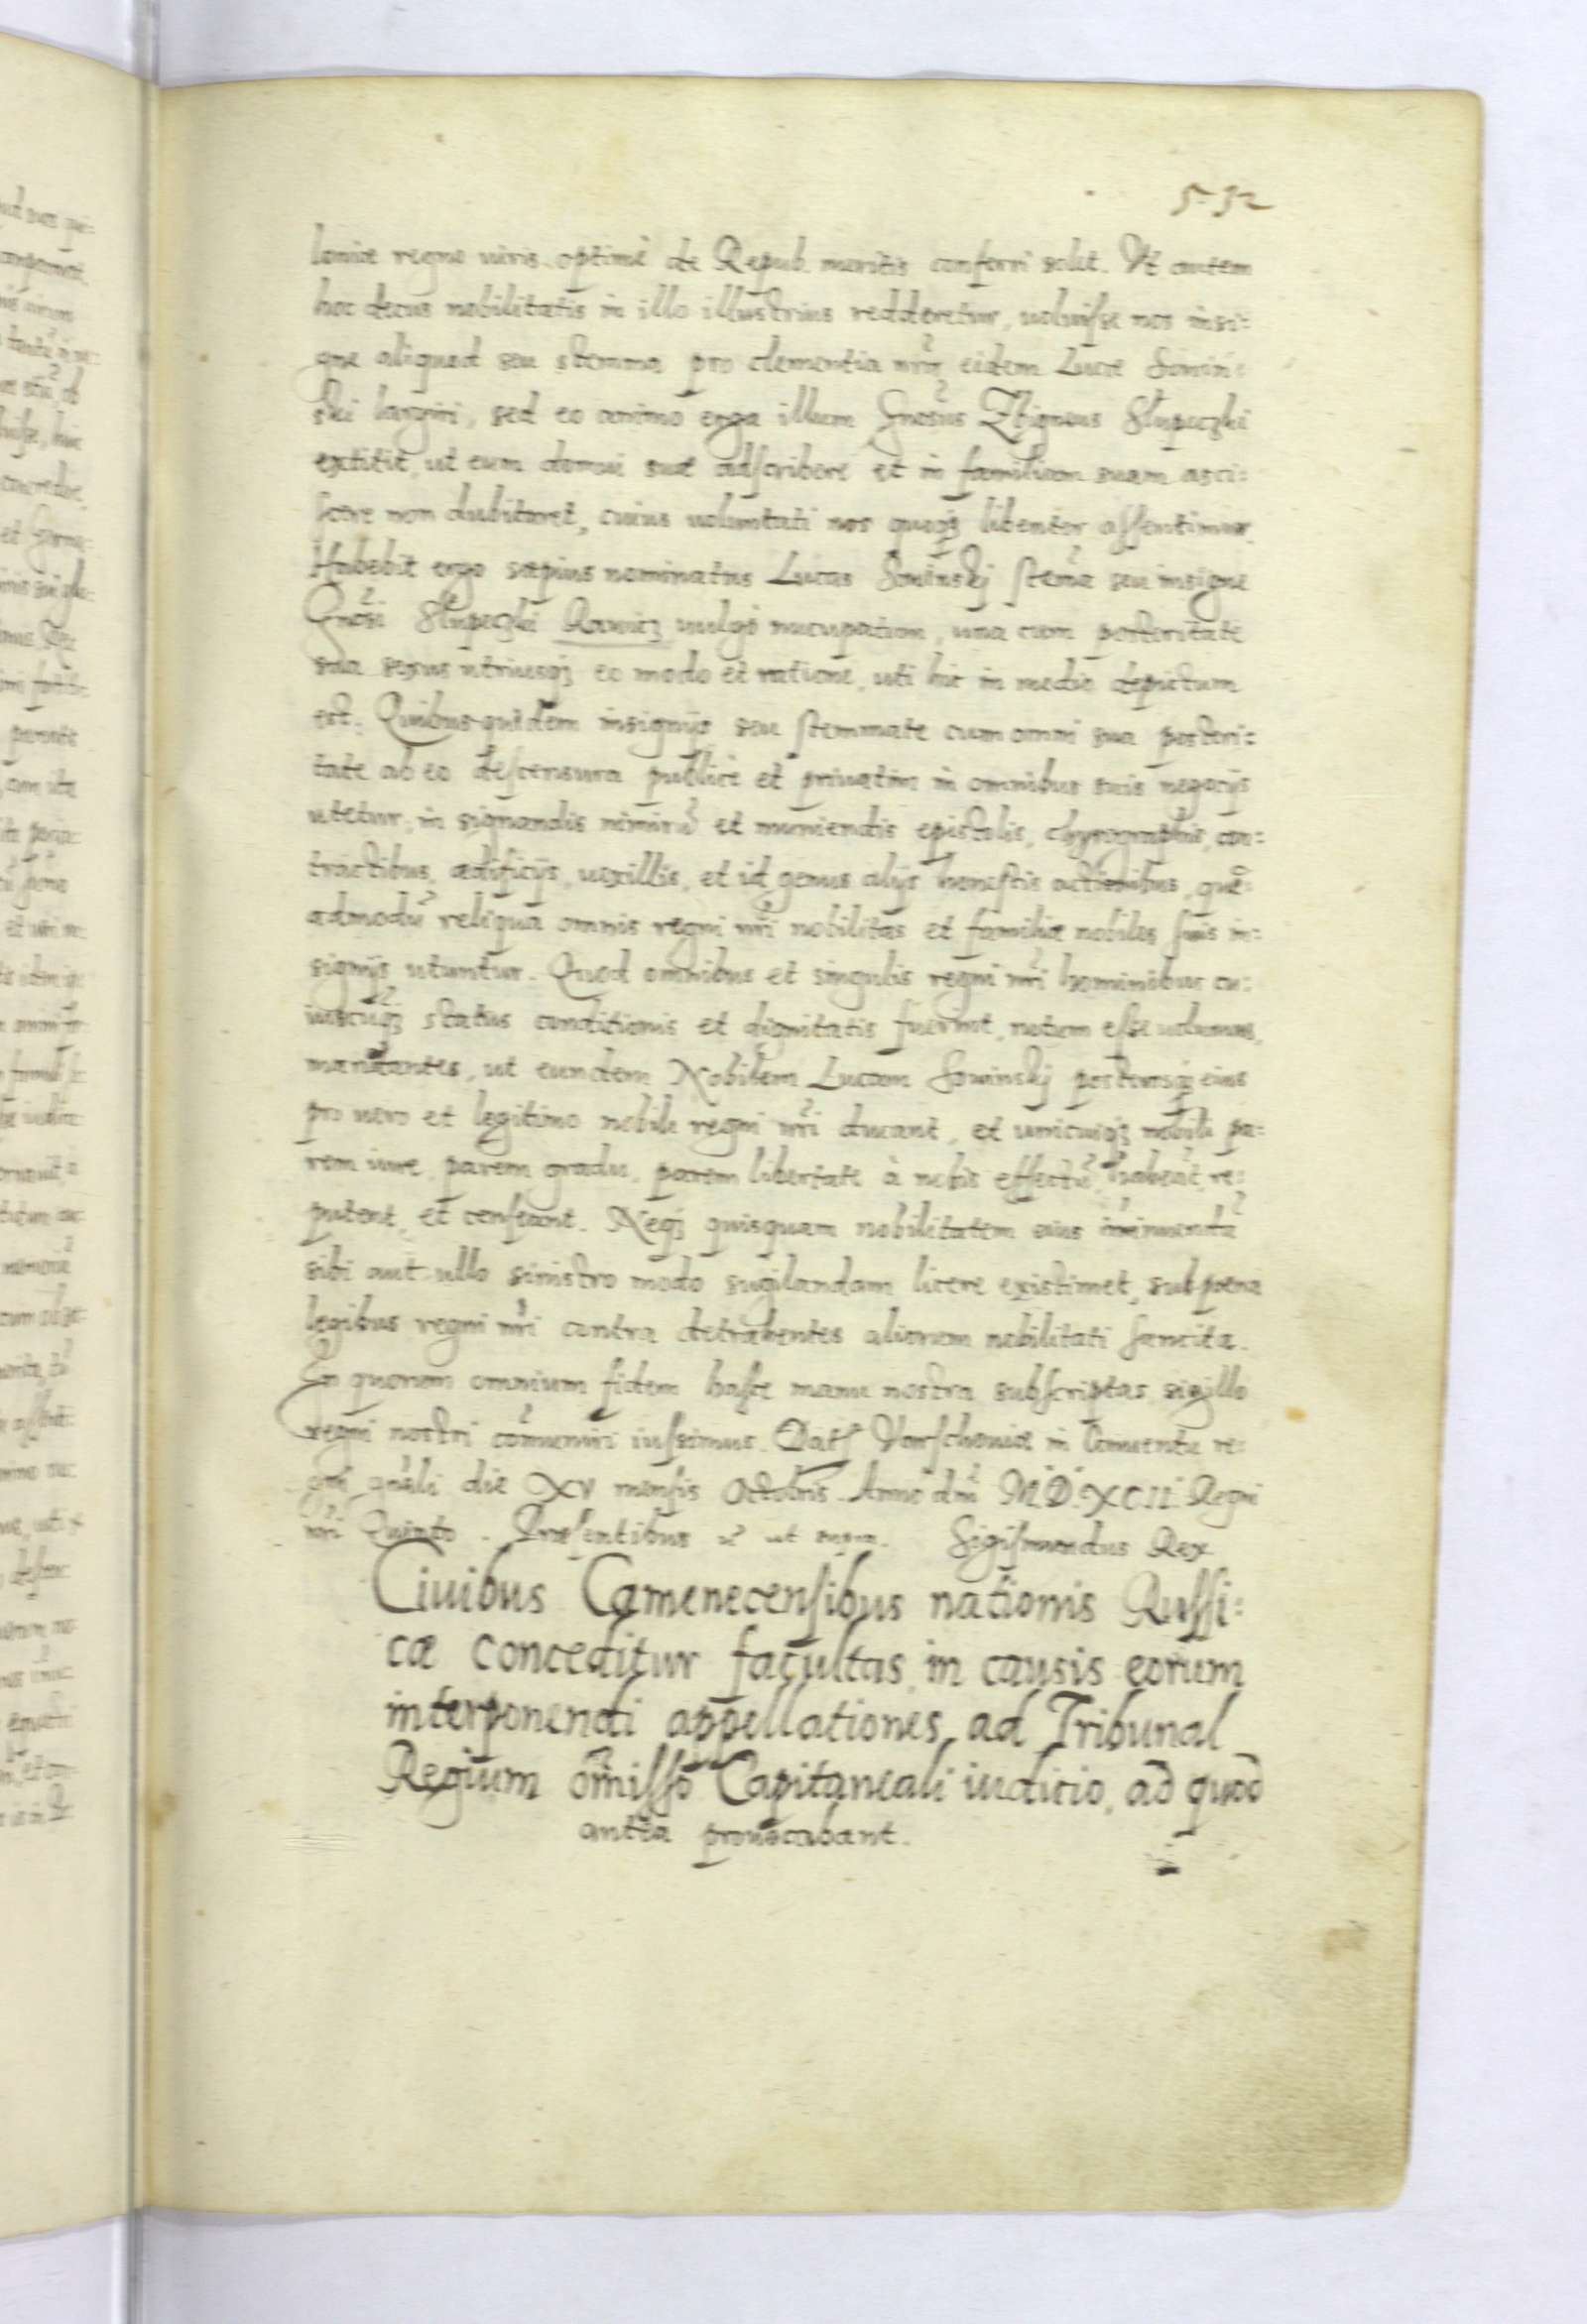 532
loniæ regno uiris optimè de Repub. meritis conferri solet. Ut autem
hoc decus nobilitatis in illo illustrius redderetur, uoluisse nos insi:
gne aliquod seu stemma pro clementia nr̃a eidem Lucæ Sowin:
ski largiri, sed eo animo erga illum Gnosus Zbigneus Slupeczki
extitit, ut eum domui suæ adscribere et in familiam suam asci:
scere non dubitaret, cuius uoluntati nos quoqȝ libenter assentimur.
Habebit ergo sæpius nominatus Lucas Sowinskj stem̃a seu insigne
Gnosi Slupeczki Rawicz uulgo nucupatum, una cum posteritate
sua sexus utriusqȝ eo modo et ratione, uti hic in medio depictum
est. Quibus quidem insignijs seu stemmate cum omni sua posteri:
tate ab eo descensura publicè et priuatim in omnibus suis negocijs
utetur, in signandis nimirũ et muniendis epistolis, chyrographis, con:
tractibus, ædificijs, uexillis, et id genus alijs honestis actionibus, quẽ:
admodũ reliqua omnis regni nr̃i nobilitas et familiæ nobiles suis in:
signijs utuntur. Quod omnibus et singulis regni nr̃i hominibus cu:
iuscũqȝ status conditionis et dignitatis fuerint, notum esse uolumus,
mandantes, ut eundem Nobilem Lucam Sowinskj posterosqȝ eius
pro uero et legitimo nobili regni nr̃i ducant, et unicuiqȝ nobili pa:
rem iure, parem gradu, parem libertate à nobis effectũ, habeãt, re:
putent, et censeant. Neqȝ quisquam nobilitatem eius im̃inuendã
sibi aut ullo sinistro modo sugilandam licere existimet, sub poena
legibus regni nr̃i contra detrahentes aliorum nobilitati sancita.
In quorum omnium fidem hasce manu nostra subscriptas sigillo
regni nostri com̃uniri iussimus. Dat Varschouiæ in Conuentu re:
gni gnãli die XV mensis Octobris. Anno dni M.D.XCII. Regni
nr̃i Quinto. Præsentibus ut supra. Sigismundus Rex
Ciuibus Camenecensibus nationis Russi:
cæ conceditur facultas in causis eorum
interponendi appellationes ad Tribunal
Regium om̃isso Capitaneali iuditio, ad quod
antea prouocabant.